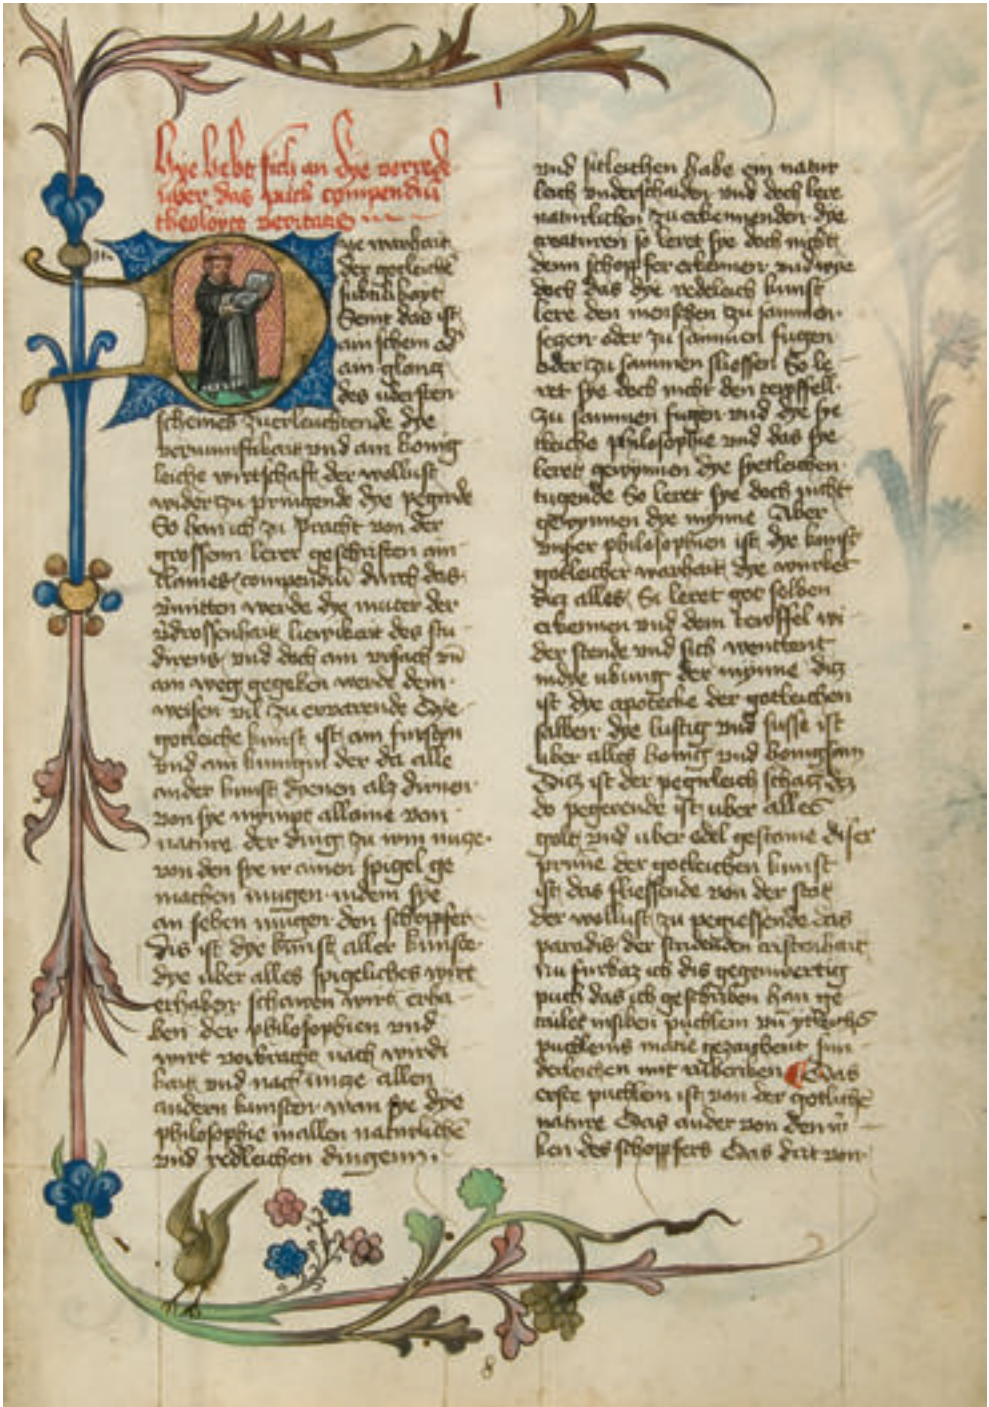 Hye hebt sich an dye vorrede
uber das puch compendiu
theologice veritatis
ye warhait
der gotleichē
subtilikayt
Seint das ist
ain schein
ain glancz
des übersten
scheines zu erleuchtende dye
vernunftikait vnd ain konig
leiche wirtschaft der wollust
wider zu pringende dye pegirde
So han ich zu pracht von der
grossenn lerer geschriften ain
claines compendiū durch das
vmitten werde dye muter der
vdrossenhait des stu
direns vnd doch ain vrsach vn̄
ain weg gegeben werde dem
weisen vil zu ervarende Dye
gotleiche kunst ist ain furstyn
vnd ain kunigin der da alle
ander kunst dyenen alz dirnen
von sye nympt allaine von
nature der ding zu irm nucze
von den sye ir ainen spigel ge
machen mugen indem sye
an sehen mugen den schoppfer
Dis ist dye kunst aller kunste
dye uber alles spigeliches wirt
erhaben schawen wirt erha
ben der philosophien vnd
wirt vorbracht nach wirdi
kait vnd nach nucze allen
andern kunsten wan sye dye
philosophie in allen naturlichē
vnd redleichen dingenn
vnd sitleichen habe ein natur
leich vnderschaiden vnd doch lere
naturlichen zu erkennenden dye
creaturen so leret sye doch nicht
denn schoppfer erkennen vnd wye
doch das dye redeleich kunst
lere den menschen zu sammen
seczen oder zu sammen fugen
oder zu sammen sliessen So le
ret sye doch nicht den tewffell
zu sammen fugen vnd dye sy
tleiche philosophie vnd das sye
leret gewynnen dye sytleichen
tugende So leret sye doch nicht
gewynnen dye mynne Aber
vnser philosophien ist dye kunst
gotleicher warhait dye wurket
dicz alles Si leret got selben
erkennen vnd dem tewffel wi
der stende vnd sich
in dye ubung der mynne dicz
ist dye apotecke der gotleichen
salben dye lustig vnd susse ist
uber alles honig vnd honigsam
Dicz ist der pegirleich schacz der
do pegerende ist uber alles
golt vnd uber edel gestaine diser
prunne der gotleichen kunst
ist das fliessende von der stat
der wollust zu pegiessende das
paradis der cristenhait
Nu furbaz ich dis gegenwertig
puch das ich geschriben han ge
tailet in siben puchlein vn̄
puchleins materie gezaichent sun
derleichen mit Das
erste puchlein ist von der gotlichē
nature Das ander von den w
ken des schoppfers Das drit von
8